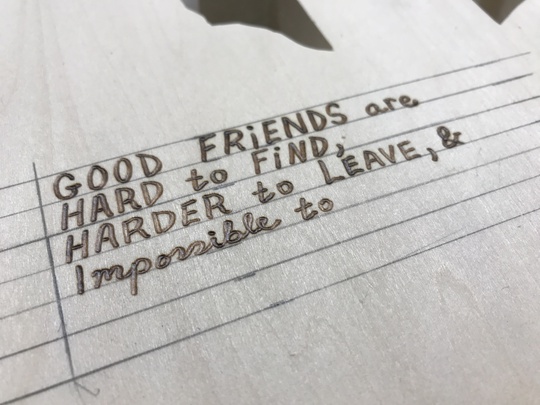 GOOD FRiENDS are
HARD to FiND,
HARDER to LEAVE, &
Impossible to